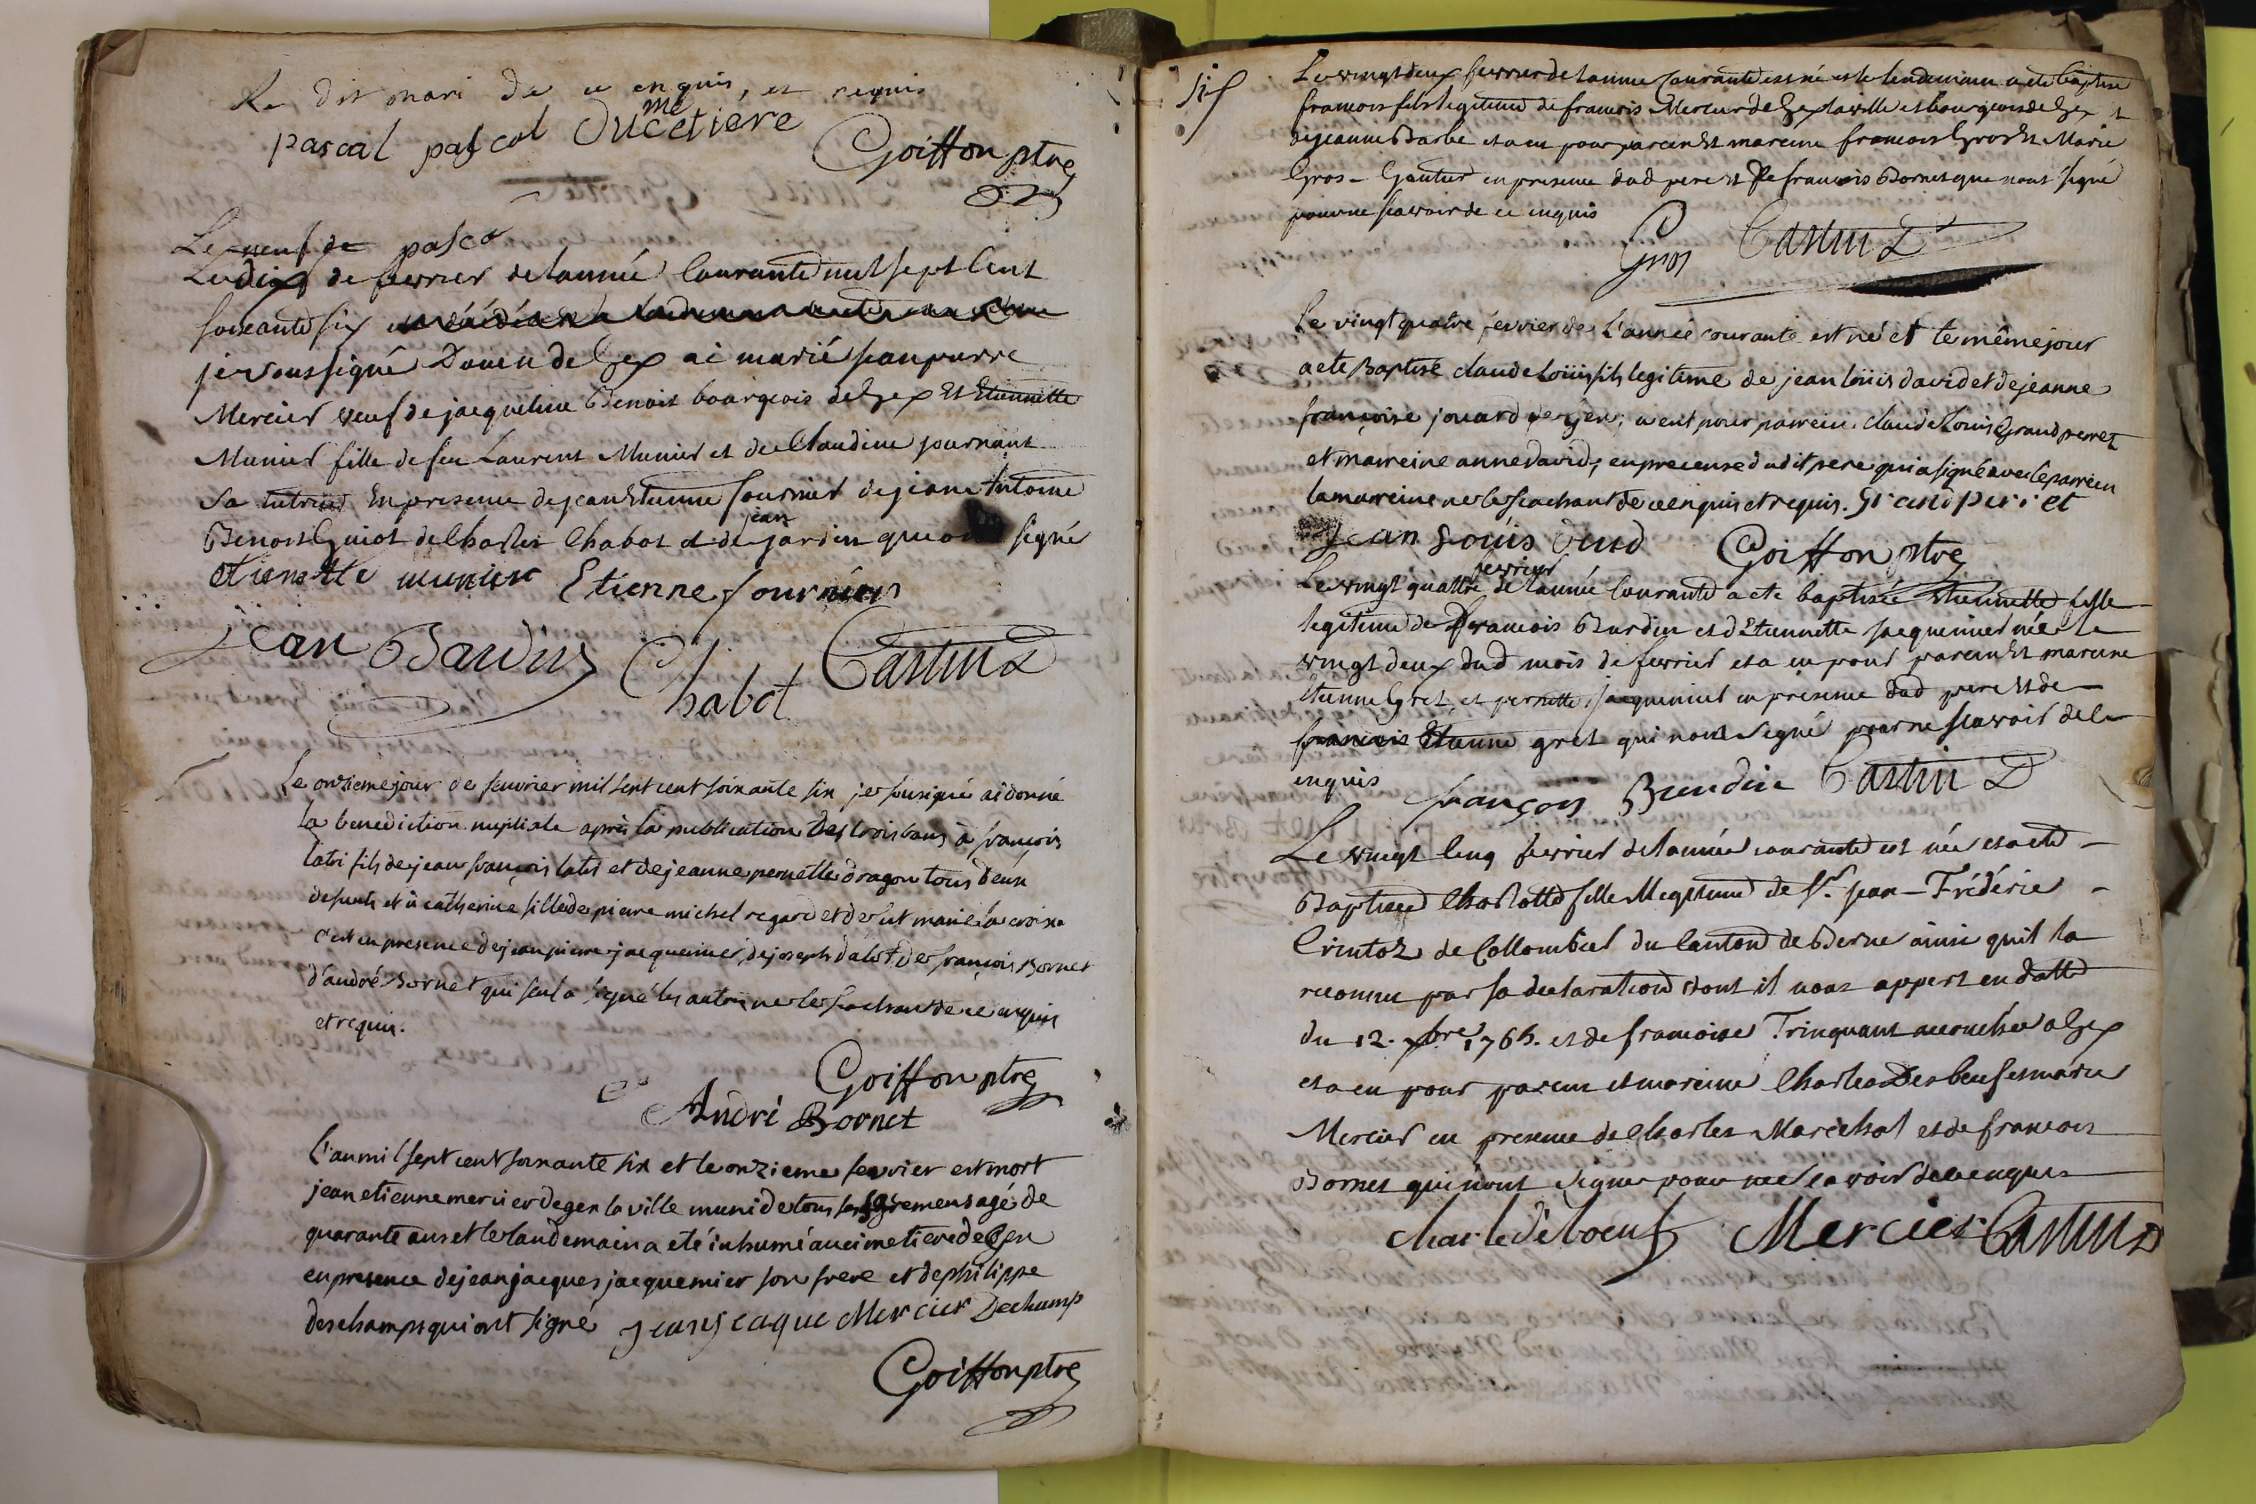 Le dit mari de ce enquis, et requis
pascal pascal Ducetiere
me
Goiffon ptre
Le neuf de pasca
Le dix de fevrier de l'année Courante mil sept Cent
soixante six
je soussigné Doyen de Gex ai marié jean pierre
Mercier veuf de jacqueline Benoit bourgeois de Gex Et Etiennette
Munier fille de feu Laurent Munier et de Claudine journant
Sa tutrice En presence de jean Etienne fournier de jeane Antoine
Benoit Guiot de Charles Chabot et de jean jardin qui ont signé
etiennette munier Etienne fournier
jean Baudin Chabot Castin D
Le onzieme jour de fevrier mil sept cent soixante six je sousigné ai donné
la benediction nuptiale après la publication des trois bans à françois
latri fils de jean françois latri et de jeanne pernette dragon tous deux
defunts et à catherine fille de pierre michel regard et de fut marie la croix
c'est en presence de jean pierre jacquemier, de joseph dalot, de françois Bornet
d'andré Bornet qui seul a signé les autres ne le sachant de ce enquis
et requis.
Goiffon ptre
André Bornet
l'an mil sept cent soixante six et le onzieme fevrier est mort
jean etienne mercier de gex la ville muni de tous les sacremens agé de
quarante ans et le landemain a eté inhumé au cimetiere de Gex
en presence de jean jacques jacquemier son frere et de philippe
deschamps qui ont signé jean jcaque Mercier Dechamp
Goiffon ptre
Le vingt deux fevrier de l'annee Courante est né et le lendemain a eté baptisé
francois fils legitime de francois Mercier de Gex la ville et bourgeois de Gex et
de jeanne Barbe et a eu pour parein Et mareine francois Gros Et Marie
Gros - Gautier en presence dud pere Et de francois Bornet que n'ont signé
pour ne scavoir de ce enquis
Gros Castin D
Le vingt quatre fevrier de l'année courante est né et le même jour
a eté Baptisé claude loüis fils legitime de jean loüis david et de jeanne
françoise jouard de Gex; a eut pour parrein claude Louis Grandperret
et marreine anne david, en presence dudit pere qui a signé avec le parrein
la marreine ne le scachant de ce enquis et requis. Grandperret
Jean Louis David Goiffon ptre
Le vingt quattre fevrier de l'année Courante a eté baptisée Etiennette fille
legitime de francois Burdin et d'Etiennette jacquemier née le
vingt deux dud mois de fevrier et a eu pour parein Et mareine
Etienne Gret, et pernette jacquemier en presence dud pere Et de
francois Etienne gret qui n'ont signé pour ne scavoir de ce
enquis
françois Burdin Castin D
Le vingt Cinq fevrier de l'année courante est née et a eté
Baptisée Charlotte fille illegitime de Sr. jean - Frédéric
Crintoz de Collombier du Canton de Berne ainsi qu'il l'a
reconnu par sa declaration dont il nous appert en datte
du 12. xbre 1765. et de francoise Trinquant accouchée a Gex
et a eu pour parein et mareine Charles Desbeuf et marie
Mercier en presence de Charles Maréchal et de francois
Bornet qui n'ont signé pour ne scavoir de ce enquis
charle deboeuf Mercier Castin D